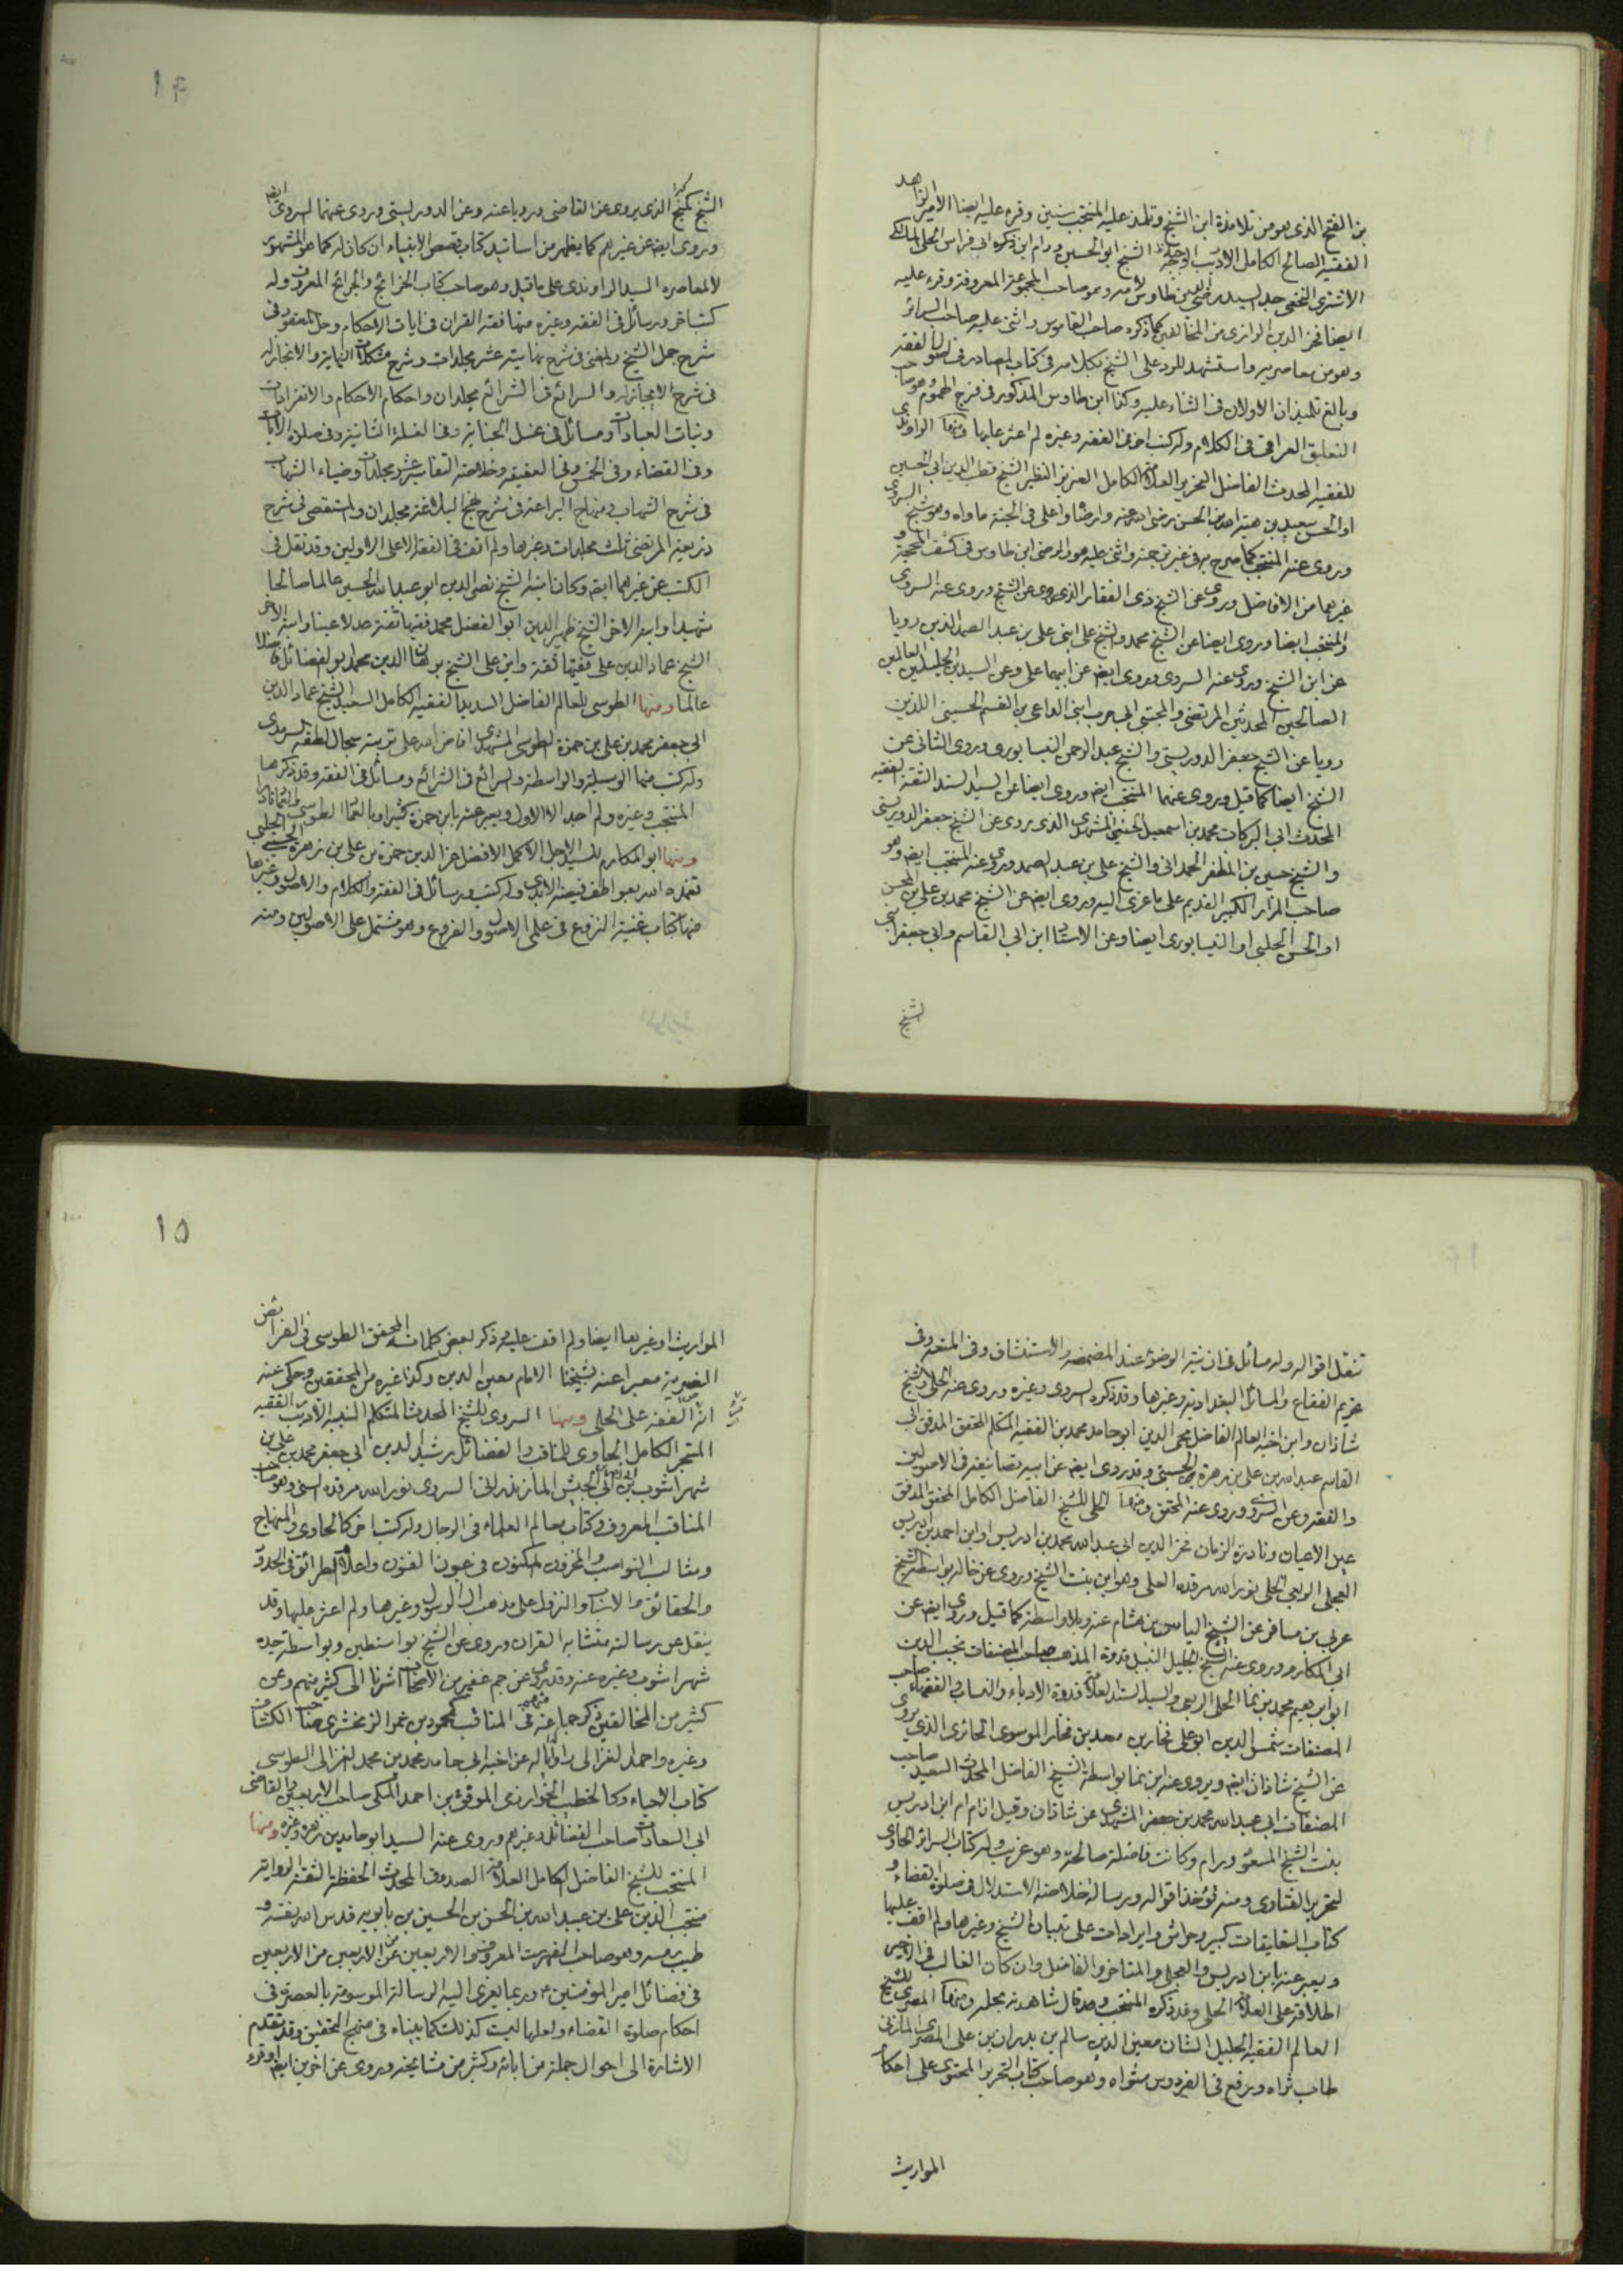 بن الفتح الذى هو من تلامذة ابن الشيخ وتلمذ عليه المنتجب سنين وقرء عليه ايضا الامير الزاهد
الفقيه الصالح الكامل الاديب الوجيه الشيخ ابو الحسين ورام ابن ذكره ابى فراس الحلى المالكى
الاشترى النخعى جد السيد رضى الدين طاوس لامه وهو صاحب المجموعة المعروفة وقرء عليه
ايضا فخر الدين الرازى من المخالفين كما ذكره صاحب القاموس واثنى عليه صاحب السرائر
وهو من معاصريه واستشهد للرد على الشيخ بكلامه فى كتاب المصادر فى اصول الفقه
وبالغ تلميذان الاولان فى الثناء عليه وكذا ابن طاوس المذكور فى فرج الهموم وهو صاحب
التعليق العراقى فى الكلام وله كتب اخر فى الفقه وغيره لم اعثر عليها ومنها الراوندى
للفقيه المحدث الفاضل النحرير العلامة الكامل العزيز النظير الشيخ قطب الدين ابى الحسين
او الحسن سعيد بن هبة الله بن الحسن رضى الله عنه وارضاه واعلى فى الجنة ماواه وهو شيخ السروى
وروى عنه المنتجب كما صرح به فى غير ترجمته واثنى عليه هو والرضى ابن طاوس فى كشف المحجة و
غيرهما من الافاضل وروى عن الشيخ ذى الفقار الذى روى عن الشيخ وروى عنه السروى
والمنتجب ايضا وروى ايضا عن الشيخ محمد والشيخ على ابنى على بن عبد الصمد الذين رويا
عن ابن الشيخ وروى عنه السروى وروى ايضا عن ابيهما على وعن السيدين الجليلين العالمين
الصالحين المحدثين المرتضى والمجتبى ابى حرب ابنى الداعى بن القسم الحسينى اللذين
رويا عن الشيخ جعفر الدوريستى والشيخ عبد الرحمن النيسابورى وروى الثانى عن
الشيخ ايضا كما قيل وروى عنهما المنتجب ايضا وروى ايضا عن السيد السند الثقة الفقيه
المحدث ابى البركات محمد بن اسمعيل الحسينى المشهدى الذى يروى عن الشيخ جعفر الدوريستى
والشيخ حسين بن المظفر الحمدانى والشيخ على بن عبد الصمد وروى عنه المنتجب ايضا وهو
صاحب المزار الكبير القديم على ما عزى اليه وروى ايضا عن الشيخ محمد بن على بن المحسن
او الحسن الحلبى او النيسابورى ايضا وعن الاستاد ابن ابى القاسم وابى جعفر ابنى
الشيخ
١٤
الشيخ كميح الذى يروى عن القاضى ورويا عنه وعن الدوريستى وروى عنهما السروى ايضا
وروى ايضا عن غيرهم كما يظهر من اسانيد كتاب قصص الانبياء ان كان له كما هو المشهور
لا لمعاصره السيد الراوندى على ما قيل وهو صاحب كتاب الخرائج والجرائح المعروف وله
كتب اخر ورسائل فى الفقه وغيره منها فقه القران فى ايات الاحكام وحل المعقود فى
شرح جمل الشيخ والمغنى فى شرح نهايته عشر مجلدات وشرح مشكلات النهاية والانجاز له
فى شرح الايجاز له والسرائع فى الشرائع مجلدان واحكام الاحكام والانفرادات
ونيات العبادات ومسائل فى غسل الجنابة وفى الغسلة الثانية وفى صلوة الايات
وفى القضاء وفى الخمس وفى العقيقة وخلاصة التفاسير عشر مجلدات وضياء الشهاب
فى شرح الشهاب ومنهاج البراعة فى شرح نهج البلاغة مجلدان والمستقصى فى شرح
ذريعة المرتضى ثلث مجلدات وغيرها ولم اقف فى الفقه الا على الاولين وقد نقل فى
الكتب عن غيرهما ايضا وكان ابنه الشيخ نصير الدين ابو عبد الله الحسين عالما صالحا
شهيدا وابنه الاخر الشيخ ظهير الدين ابو الفضل محمد فقيها ثقة عدلا عينا وابنه الاخر
الشيخ عماد الدين على فقيها ثقة وابن على الشيخ برهان الدين محمد ابو الفضائل فاضلا
عالما ومنها الطوسى للعالم الفاضل السديد الفقيه الكامل السعيد الشيخ عماد الدين
ابى جعفر محمد بن على بن حمزة الطوسى المشهدى افاض الله على تربته سجال لطفه السرمدى
وله كتب منها الوسيلة والواسطة والرائع فى الشرائع ومسائل فى الفقه وقد ذكرها
المنتجب وغيره ولم اجد الا الاول ويعبر عنه بابن حمزة كثيرا وبالعماد الطوسى
ومنها ابو المكارم للسيد الاجل الاكمل الافضل عز الدين حمزة بن على بن زهرة الحسينى الحلبى
تغمده الله بعواطف فيضه الابدى وله كتب ورسائل فى الفقه والكلام والاصول وغيرها
منها كتاب غنية النزوع فى علمى الاصول والفروع وهو مشتمل على الاصولين ومنه
تنقل اقواله وله مسائل فى ان نية الوضوء عند المضمضة والاستنشاق وفى المتعة وفى
تحريم الفقاع والمسائل البغدادية وغيرها وقد ذكره السروى وغيره وروى عنه الحلى والشيخ
شاذان وابن اخيه العالم الفاضل محيى الدين ابو حامد محمد بن الفقيه المتكلم المحقق المدقق ابى
القاسم عبد الله بن على بن زهرة الحسينى وقد روى ايضا عن ابيه تصانيفه فى الاصولين
والفقه وعن السروى وروى عنه المحقق ومنها الحلى للشيخ الفاضل الكامل المحقق المدقق
عين الاعيان ونادرة الزمان فخر الدين ابى عبد الله محمد بن ادريس او ابن احمد بن ادريس
العجلى الربعى الحلى نور الله مرقده العلى وهو ابن بنت الشيخ وروى عن خاله بواسطة الشيخ
عربى بن مسافر عن الشيخ الياس بن هشام عنه وبلا واسطة كما قيل وروى ايضا عن
ابى المكارم وروى عنه الشيخ الجليل النبيل قدوة المذهب صاحب المصنفات نجيب الدين
ابو ابرهيم محمد بن نما الحلى الربعى والسيد السند العلامة قدوة الادباء والنساب والفقهاء صاحب
المصنفات شمس الدين ابو على فخار بن معد بن فخار الموسوى الحائرى الذى يروى
عن الشيخ شاذان ايضا ويروى عنه ابن نما بواسطة الشيخ الفاضل المحدث السعيد صاحب
المصنفات ابى عبد الله محمد بن جعفر المشهدى عن شاذان وقيل ان ام ام ابن ادريس
بنت الشيخ المسعود ورام وكانت فاضلة صالحة وهو غريب وله كتاب السرائر الحاوى
لتحرير الفتاوى ومنه تؤخذ اقواله ورسالة خلاصة الاستدلال فى صلوة القضاء و
كتاب التعليقات كبير وحواش وايرادات على تبيان الشيخ وغيرها ولم اقف عليها
ويعبر عنه بابن ادريس والعجلى والمتاخر والفاضل وان كان الغالب فى الاخير
اطلاقه على العلامة الحلى وقد ذكره المنتجب وقال شاهدته بحلة ومنها المصرى للشيخ
العالم الفقيه الجليل الشان معين الدين سالم بن بدران بن على المصرى المازنى
طاب ثراه ورفع فى الفردوس مثواه وهو صاحب كتاب التحرير المحتوى على احكام
المواريث
١٥
المواريث او غيرها ايضا ولم اقف عليه وذكر بعض كلماته المحقق الطوسى فى الفرائض
النصيرية معبرا عنه بشيخنا الامام معين الدين وكذا غيره من المحققين وحكى عنه
انه تفقه على الحلى ومنها السروى للشيخ المحدث المتكلم النبيه الاديب الفقيه
المتبحر الكامل الحاوى للمناقب والفضائل رشيد الدين ابى جعفر محمد بن على بن
شهراشوب بن ابى نصر بن ابى الجيش المازندرانى السروى نور الله مرقده السنى وهو صاحب
المناقب المعروف وكتاب معالم العلماء فى الرجال وله كتب اخر كالحاوى والمنهاج
ومثالب النواصب والمخزون المكنون فى عيون الفنون واعلام الطرائق فى الحدود
والحقائق والاسباب والنزول على مذهب ال الرسول وغيرها ولم اعثر عليها وقد
ينقل عن رسالته متشابه القران وروى عن الشيخ بواسطتين وبواسطة جده
شهراشوب وغيره عنه وقد روى عن جم غفير من الاصحاب اشرنا الى كثير منهم وعن
كثير من المخالفين ذكر جماعة منهم فى المناقب كمحمود بن عمر الزمخشرى صاحب الكشاف
وغيره واحمد الغزالى راويا له عن اخيه ابى حامد محمد بن محمد الغزالى الطوسى
كتاب الاحياء وكالخطيب الخوارزمى الموفق بن احمد المكى صاحب الاربعين والقاضى
ابى السعادات صاحب الفضائل وغيرهم وروى عنه السيد ابو حامد بن زهرة وغيره ومنها
المنتجب للشيخ الفاضل الكامل العلامة الصدوق المحدث الحفظة الثقة الرواية
منتجب الدين على بن عبيد الله بن الحسن بن الحسين بن بابويه قدس الله نفسه و
طيب رمسه وهو صاحب الفهرست المعروف والاربعين عن الاربعين من الاربعين
فى فضائل امير المؤمنين ع وربما يعزى اليه الرسالة الموسومة بالعصرة فى
احكام صلوة القضاء ولعلها ليست كذلك كما بيناه فى منهج التحقيق وقد تقدم
الاشارة الى احوال جملة من ابائه وكثير من مشايخه وروى عن اخرين ايضا